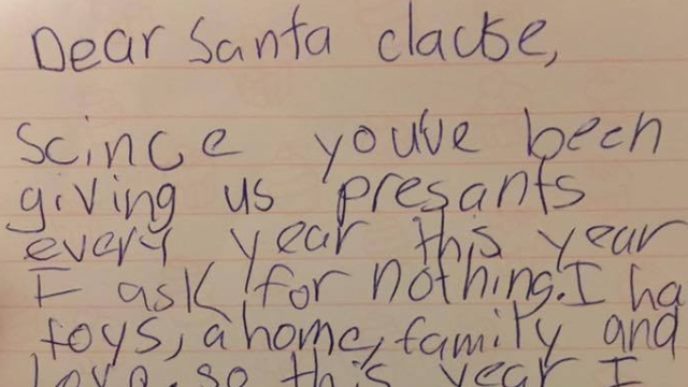 Dear Santa clause,
Scince you've been
giving us presants
every year this year
I ask for nothing. I ha
toys, a home, family and
love, so this year I